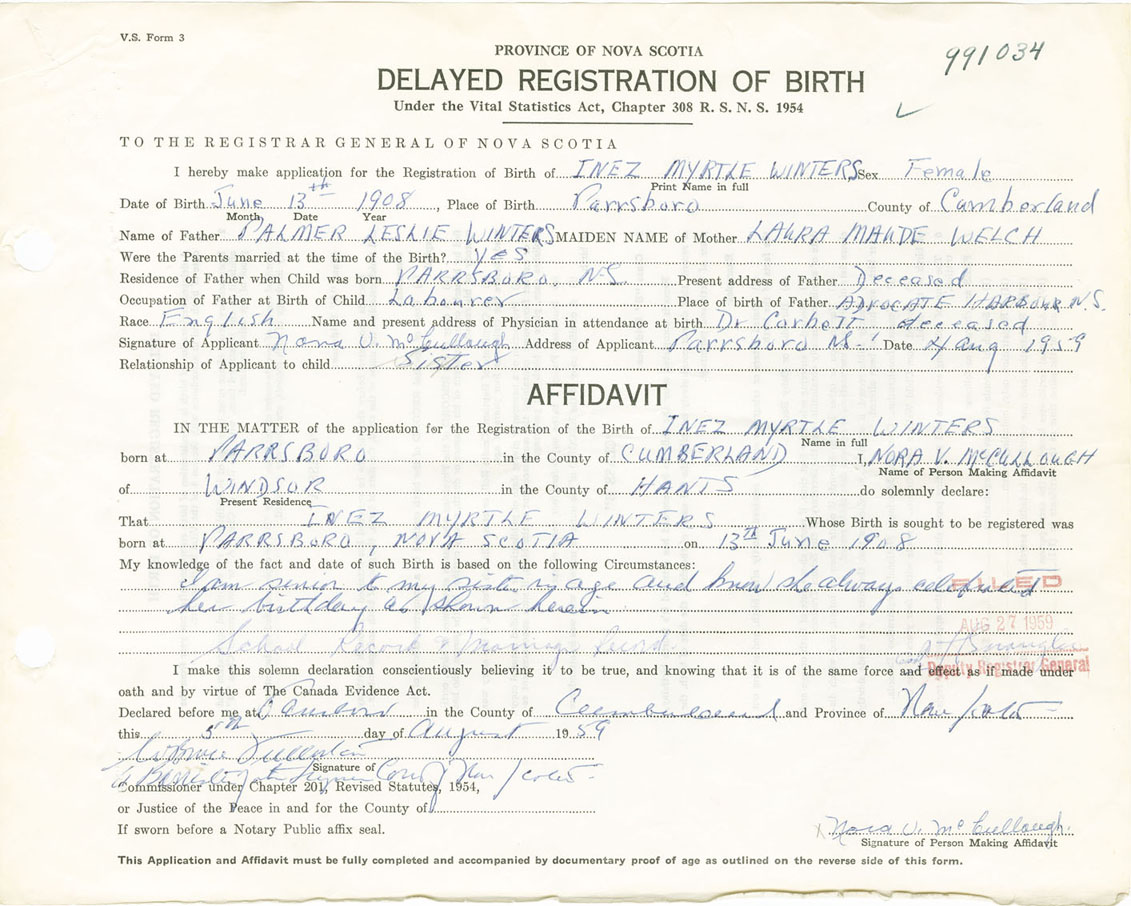 V.S. Form 3
PROVINCE OF NOVA SCOTIA
991034
DELAYED REGISTRATION OF BIRTH
Under the Vital Statistics Act, Chapter 308 R. S. N. S. 1954
TO THE REGISTRAR GENERAL OF NOVA SCOTIA
I hereby make application for the Registration of Birth of INEZ MYRTLE WINTERS Sex Female
Print Name in full
Date of Birth June 13th 1908, Place of Birth Parrsboro County of Cumberland
Month Date Year
Name of Father PALMER LESLIE WINTERS MAIDEN NAME of Mother LAURA MAUDE WELCH
Were the Parents married at the time of the Birth? Yes
Residence of Father when Child was born PARRSBORO, N.S. Present address of Father Deceased
Occupation of Father at Birth of Child Labourer Place of birth of Father ADVOCATE HARBOUR N.S.
Race English Name and present address of Physician in attendance at birth Dr Corbett deceased
Signature of Applicant Nora V. McCullough Address of Applicant Parrsboro NS Date 4 Aug 1959
Relationship of Applicant to child Sister
AFFIDAVIT
IN THE MATTER of the application for the Registration of the Birth of INEZ MYRTLE WINTERS
Name in full
born at PARRSBORO in the County of CUMBERLAND I, NORA V. McCULLOUGH
Name of Person Making Affidavit
of WINDSOR in the County of HANTS do solemnly declare:
Present Residence
That INEZ MYRTLE WINTERS Whose Birth is sought to be registered was
born at PARRSBORO, NOVA SCOTIA on 13TH June 1908
My knowledge of the fact and date of such Birth is based on the following Circumstances:
I am senior to my sister in age and know she always celebrated
her birthday as shown herein
FILED
AUG 27 1959
School Record & Marriage
Deputy Registrar General
I make this solemn declaration conscientiously believing it to be true, and knowing that it is of the same force and effect as if made under
oath and by virtue of The Canada Evidence Act.
Declared before me at Parrsboro in the County of Cumberland and Province of Nova Scotia
this 5th day of August 1959
Signature of
A Barrister of the Supreme Court of Nova Scotia
Commissioner under Chapter 201, Revised Statutes, 1954,
or Justice of the Peace in and for the County of
If sworn before a Notary Public affix seal.
x Nora V. McCullough
Signature of Person Making Affidavit
This Application and Affidavit must be fully completed and accompanied by documentary proof of age as outlined on the reverse side of this form.